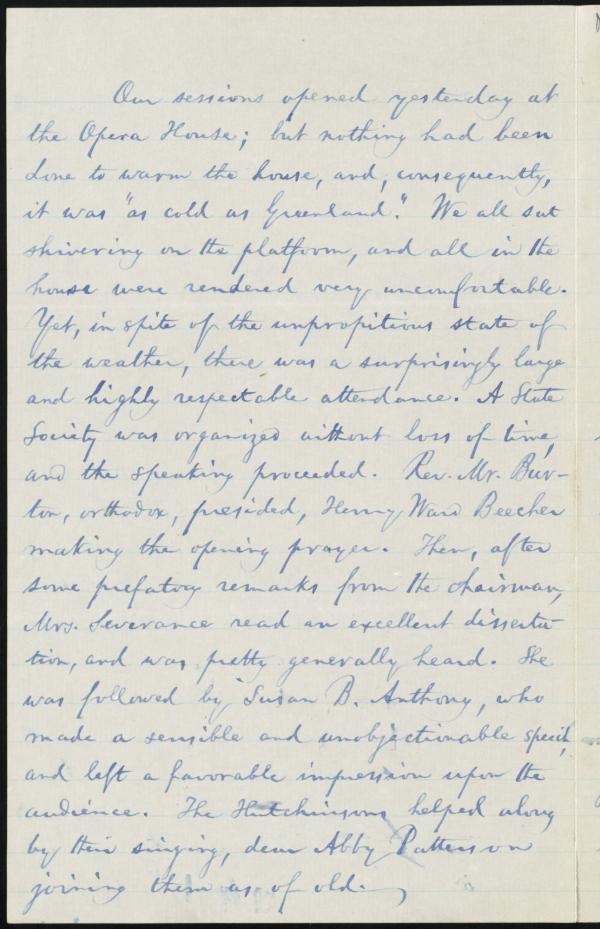 Our sessions opened yesterday at
the Opera House; but nothing had been
done to warm the house, and, consequently,
it was "as cold as Greenland." We all sat
shivering on the platform, and all in the
house were rendered very uncomfortable.
Yet, in spite of the unpropitious state of
the weather, there was a surprisingly large
and highly respectable attendance. A State
Society was organized without loss of time,
and the speaking proceeded. Rev. Mr. Bur-
ton, orthodox, presided, Henry Ward Beecher
making the opening prayer. Then, after
some prefatory remarks from the chairman,
Mrs. Severance read an excellent disserta-
tion, and was pretty generally heard. She
was followed by Susan B. Anthony, who
made a sensible and unobjectionable speech,
and left a favorable impression upon the
audience. The Hutchinsons helped along
by their singing, dear Abby Patterson
joining them as of old.